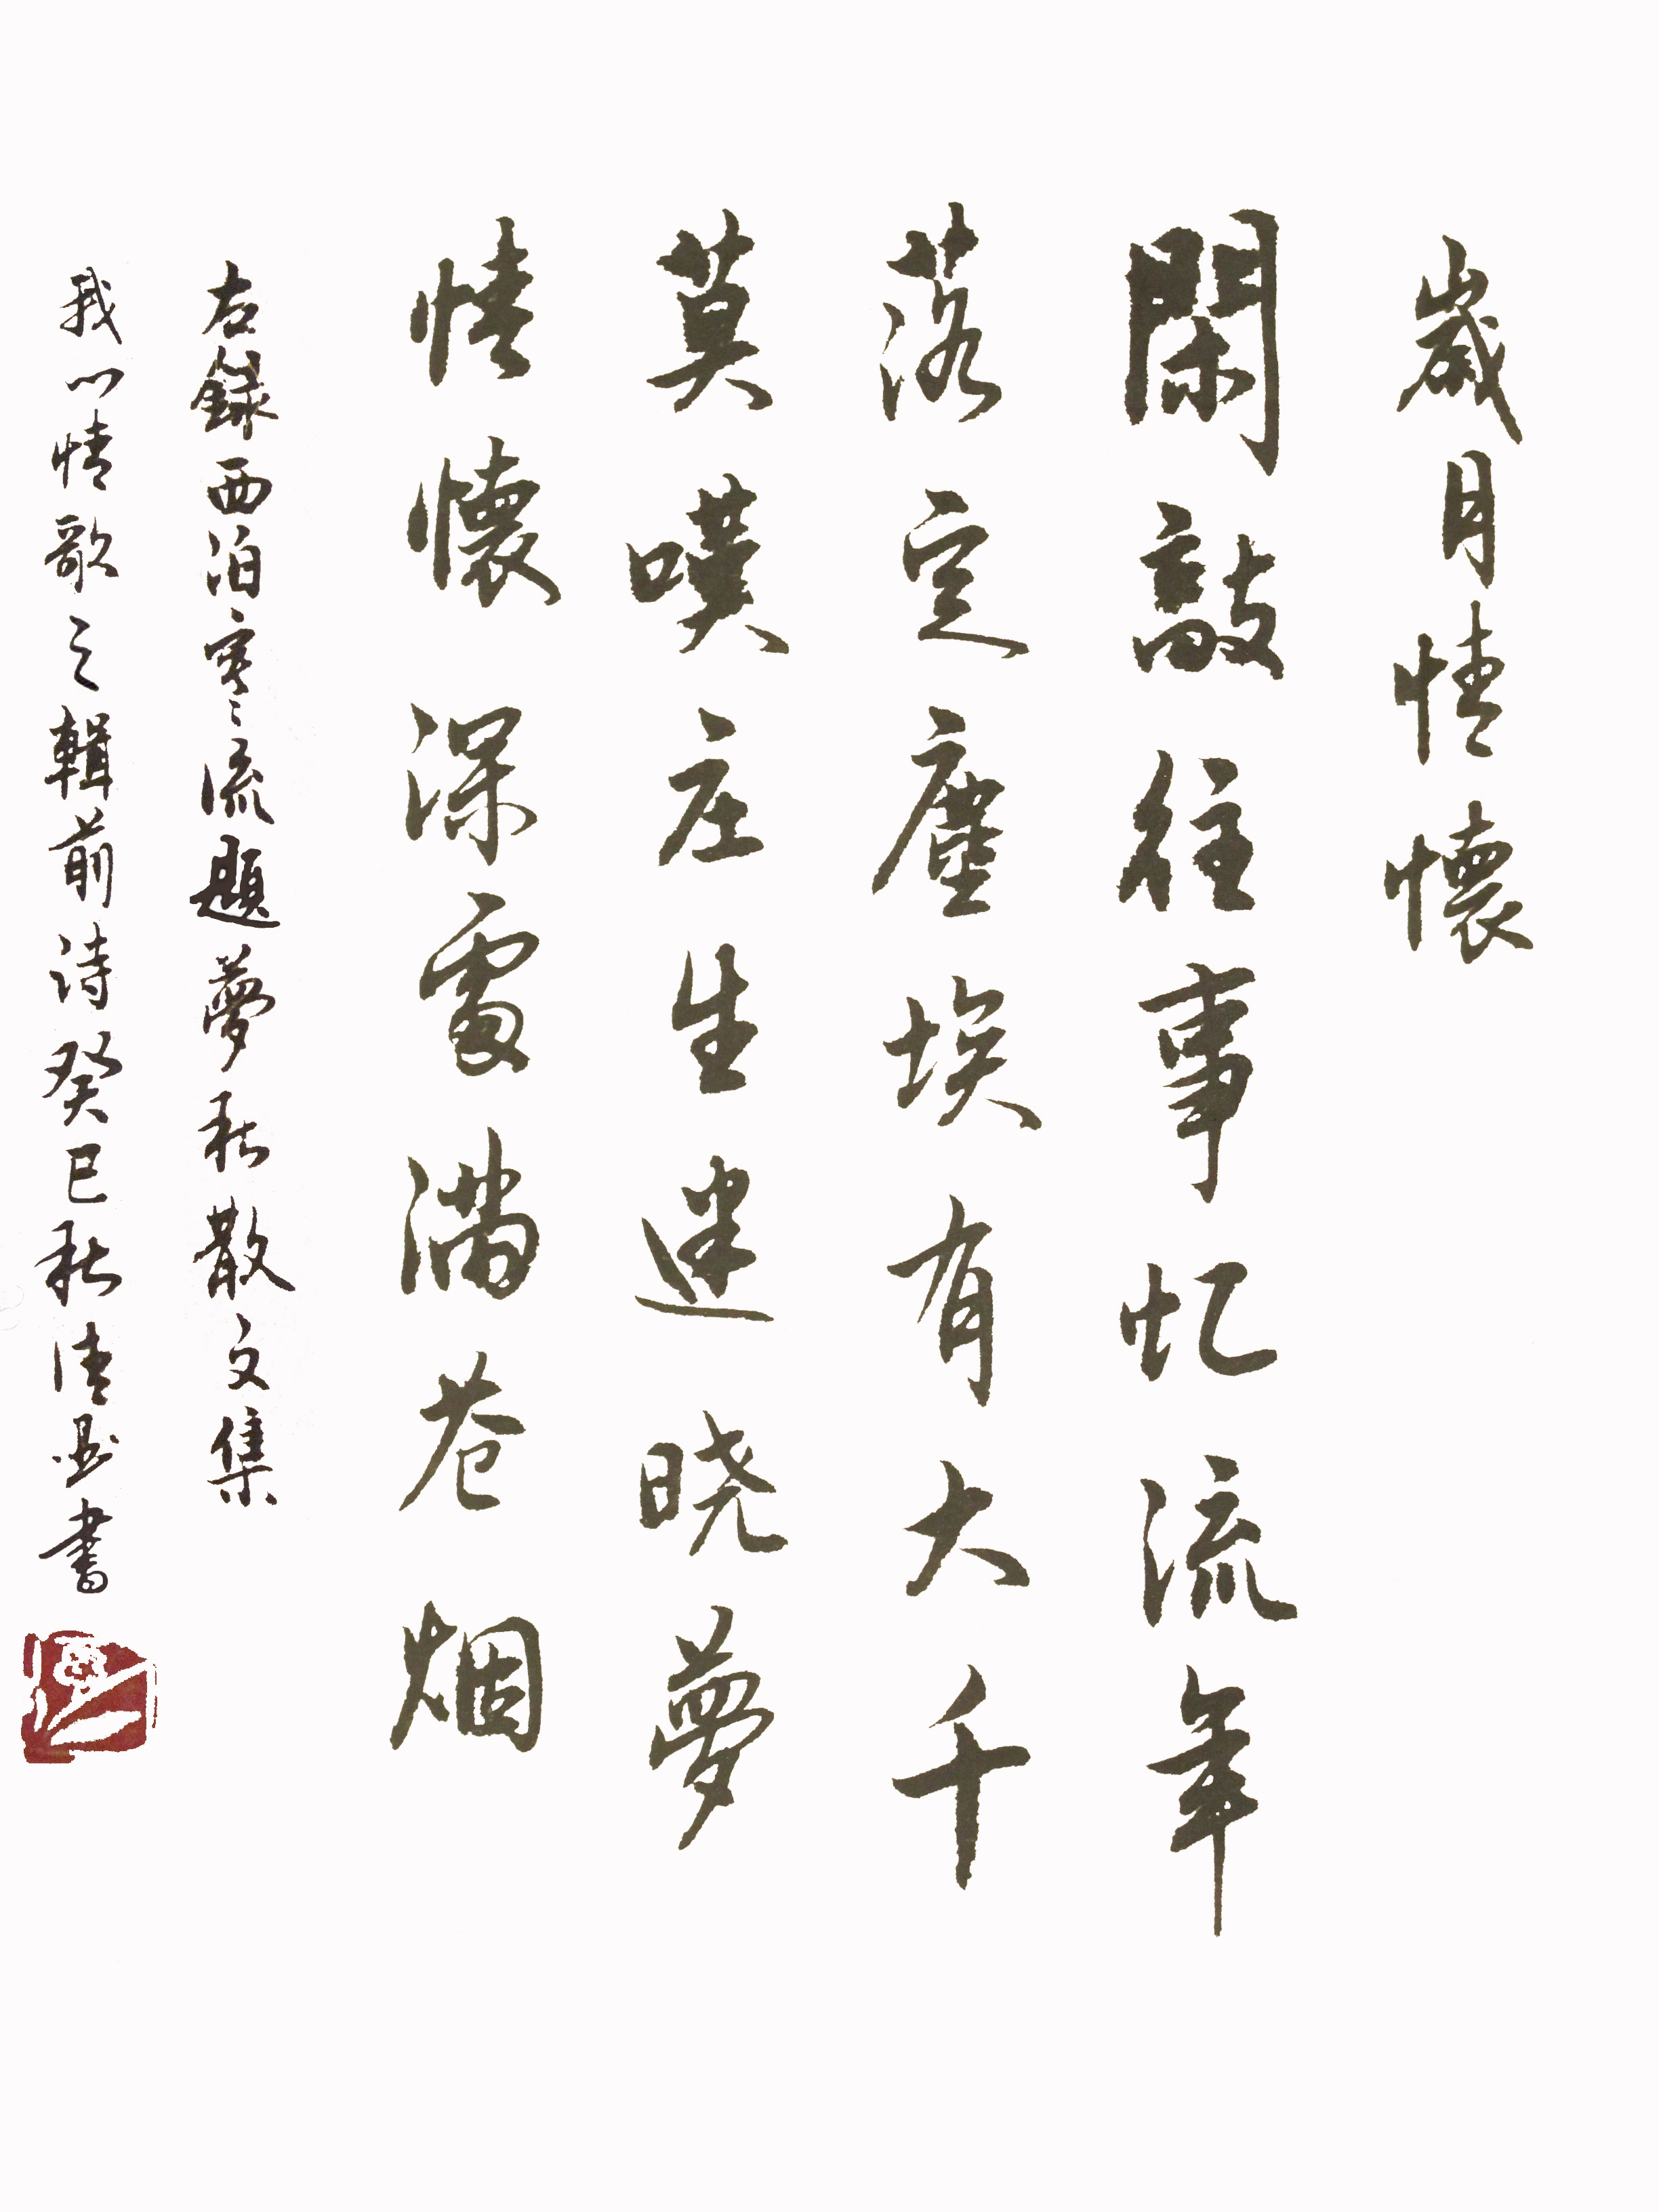 歲月情懷
閑敲往事忆流年
落定塵埃有大千
莫嘆庄生迷晓夢
情懷深處满苍烟
右錄西泊寒流題夢秋散文集
我以情歌之輯前詩癸巳秋書